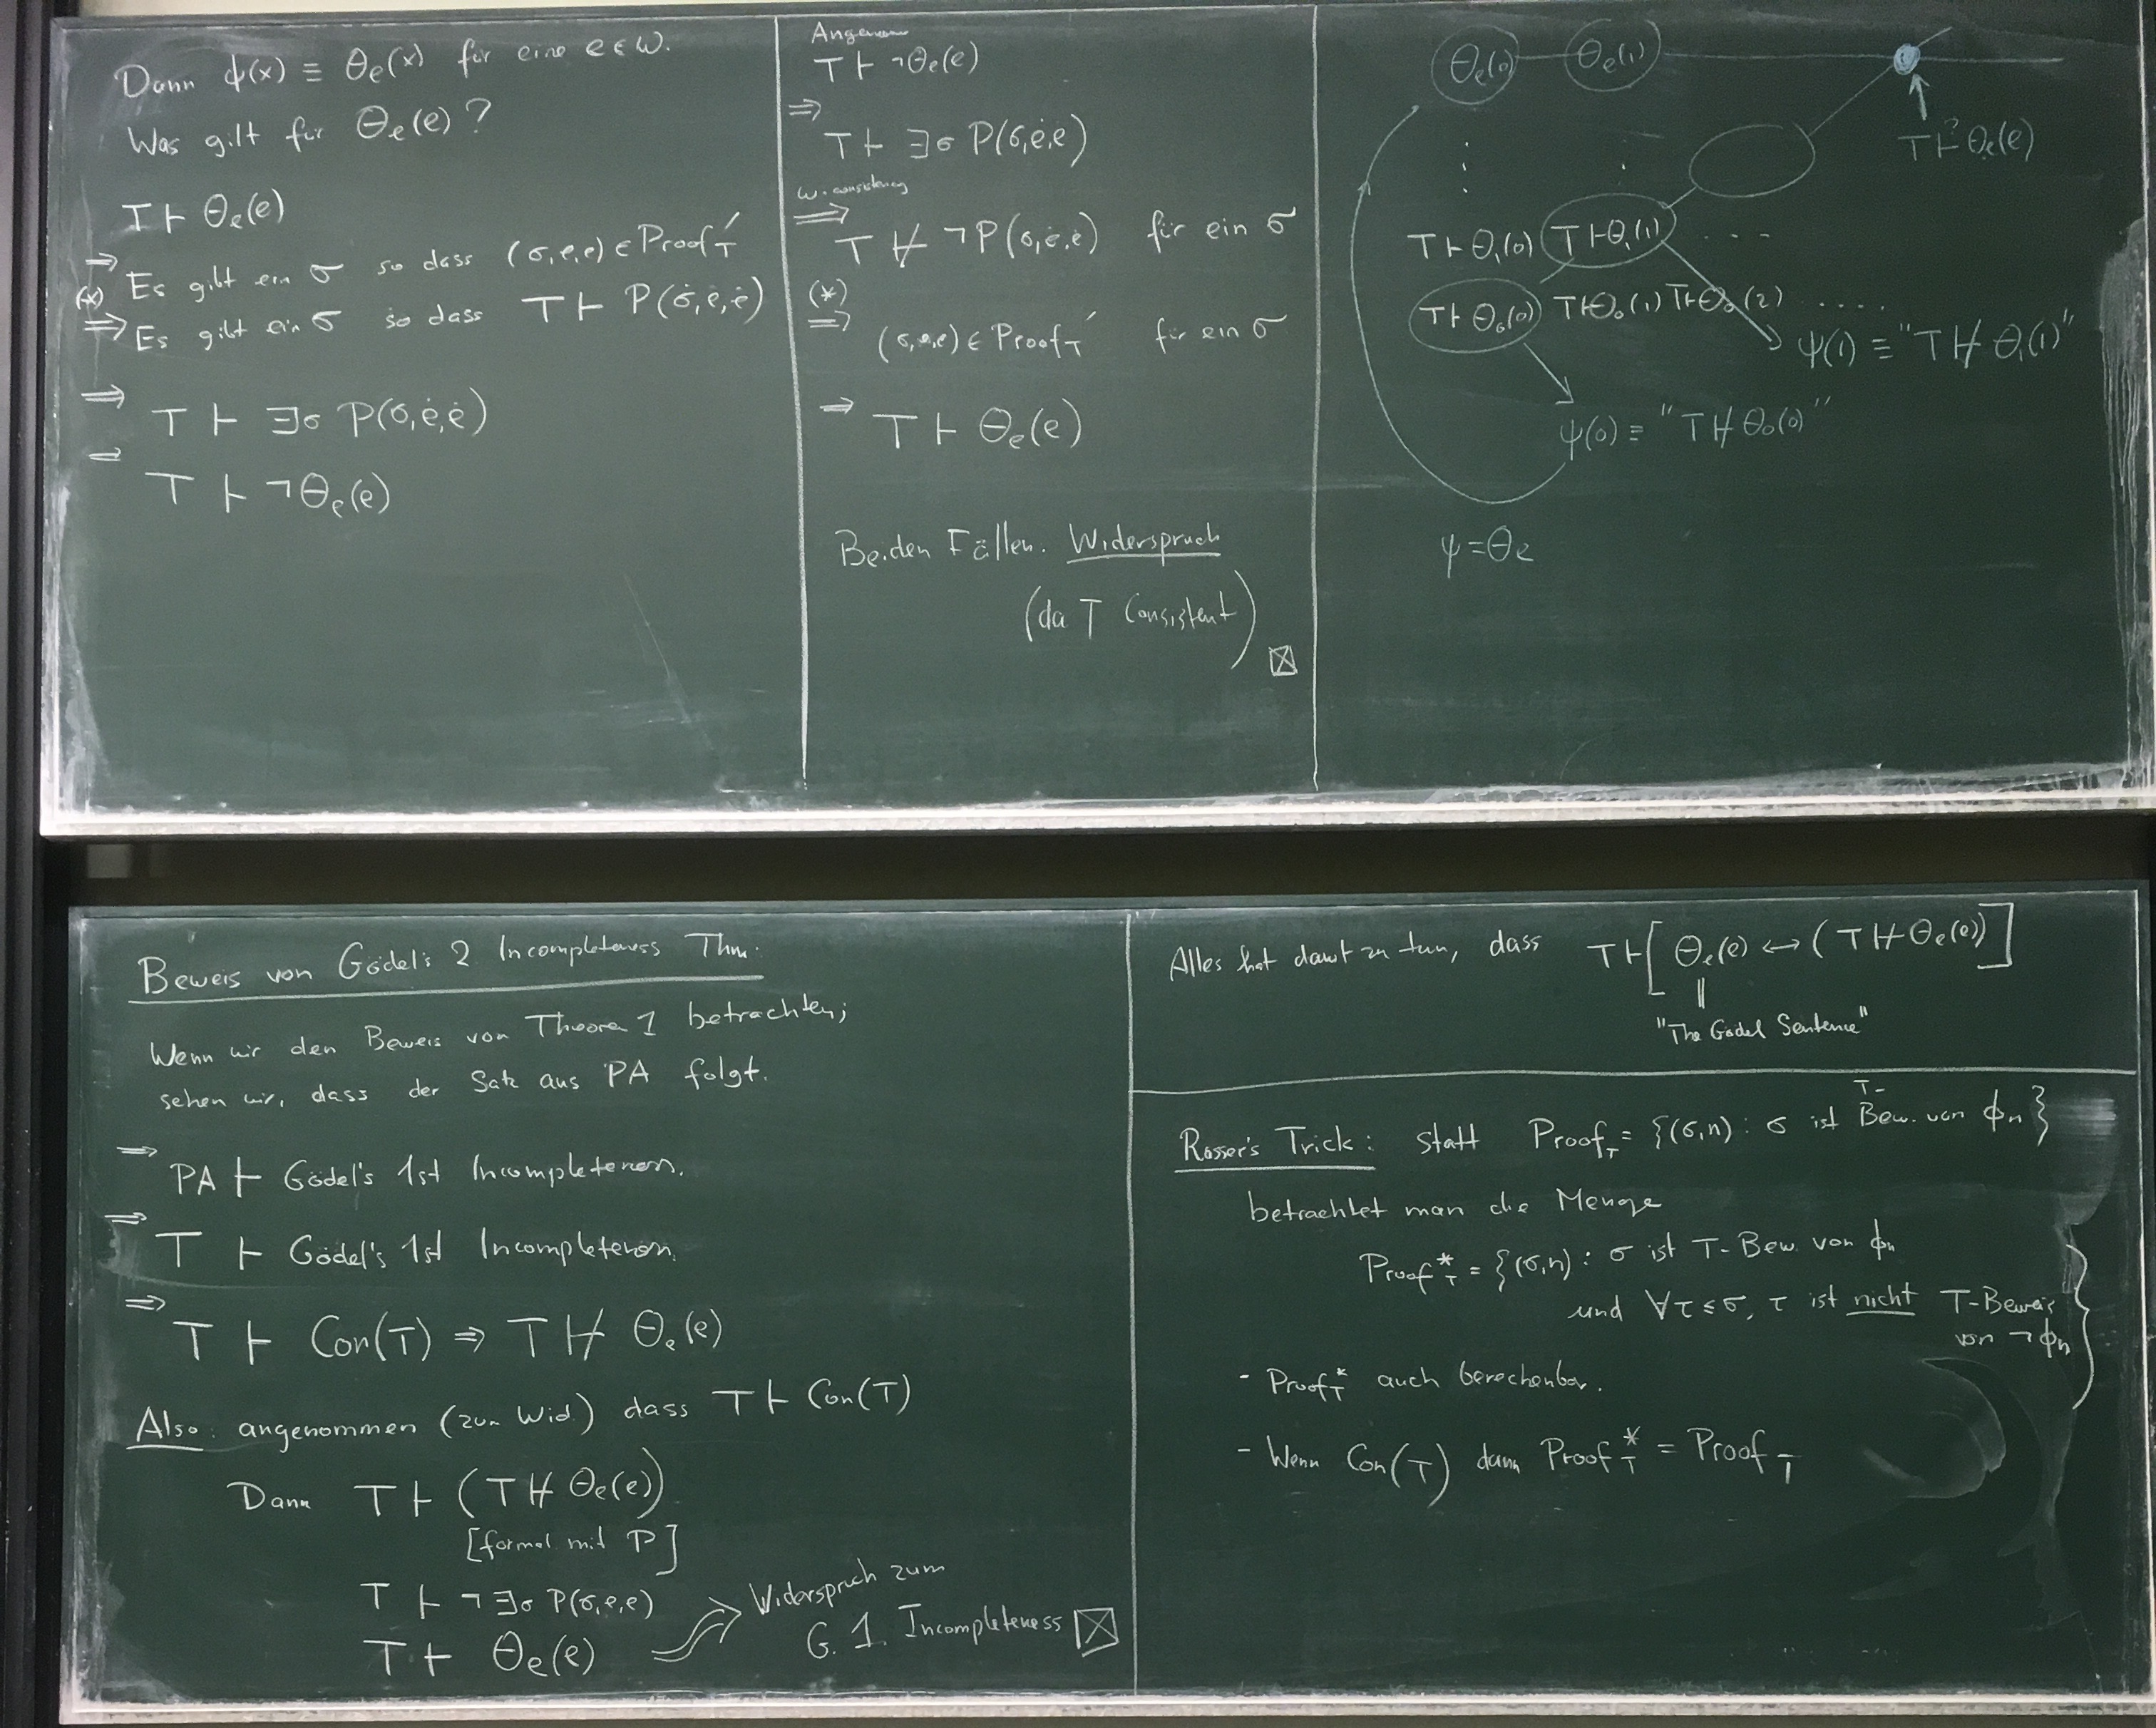 Dann ψ(x) ≡ Θe(x) für eine e ∈ ω.
Was gilt für Θe(e)?
T ⊢ Θe(e)
⇒ Es gibt ein σ so dass (σ,e,e) ∈ Proof'T
(*) ⇒ Es gibt ein σ so dass T ⊢ P(σ̇,ė,ė)
⇒ T ⊢ ∃σ P(σ,ė,ė)
⇒ T ⊢ ¬Θe(e)
T ⊢ ¬Θe(e)
⇒ T ⊢ ∃σ P(σ,ė,e)
ω-consistency
⇒ T ⊬ ¬P(σ,ė,ė) für ein σ
(*)
⇒ (σ,e,e) ∈ Proof'T für ein σ
⇒ T ⊢ Θe(e)
Beiden Fällen. Widerspruch
(da T Consistent)
Θe(0) Θe(1)
T ⊢? Θe(e)
T ⊢ Θ1(0) T ⊢ Θ1(1) ...
T ⊢ Θ0(0) T ⊢ Θ0(1) T ⊢ Θ0(2) .....
ψ(1) ≡ "T ⊬ Θ1(1)"
ψ(0) ≡ "T ⊬ Θ0(0)"
ψ = Θe
Beweis von Gödel's 2 Incompleteness Thm:
Wenn wir den Beweis von Theorem 1 betrachten,
sehen wir, dass der Satz aus PA folgt.
⇒ PA ⊢ Gödel's 1st Incompleteness.
⇒ T ⊢ Gödel's 1st Incompleteness.
⇒ T ⊢ Con(T) ⇒ T ⊬ Θe(e)
Also: angenommen (zum Wid) dass T ⊢ Con(T)
Dann T ⊢ (T ⊬ Θe(e))
[formal mit P]
T ⊢ ¬∃σ P(σ,e,e)
T ⊢ Θe(e)
Widerspruch zum
G. 1. Incompleteness
Alles hat damit zu tun, dass T ⊢ [Θe(e) ↔ (T ⊬ Θe(e))]
"The Gödel Sentence"
Rosser's Trick: statt ProofT = {(σ,n) : σ ist T-Bew. von ϕn}
betrachtet man die Menge
Proof*T = {(σ,n) : σ ist T-Bew. von ϕn
und ∀τ ≤ σ, τ ist nicht T-Beweis
von ¬ϕn}
- Proof*T auch berechenbar.
- Wenn Con(T) dann Proof*T = ProofT